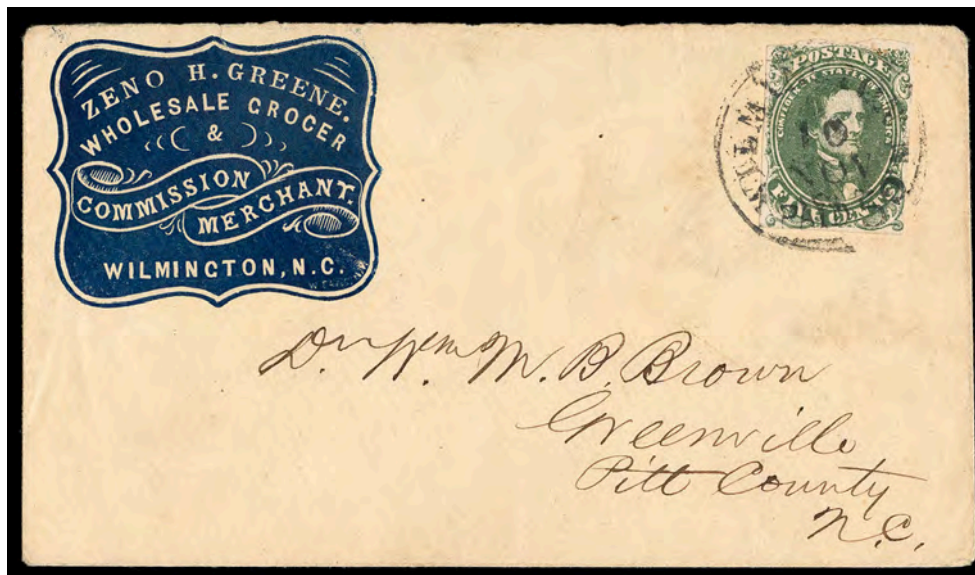 ZENO H. GREENE.
WHOLESALE GROCER
&
COMMISSION
MERCHANT.
WILMINGTON, N.C.
POSTAGE
CONFEDERATE STATES OF AMERICA
WILMINGTON
10
NOV
FIVE CENTS
Dr Wm M. B. Brown
Greenville
Pitt County
N.C.